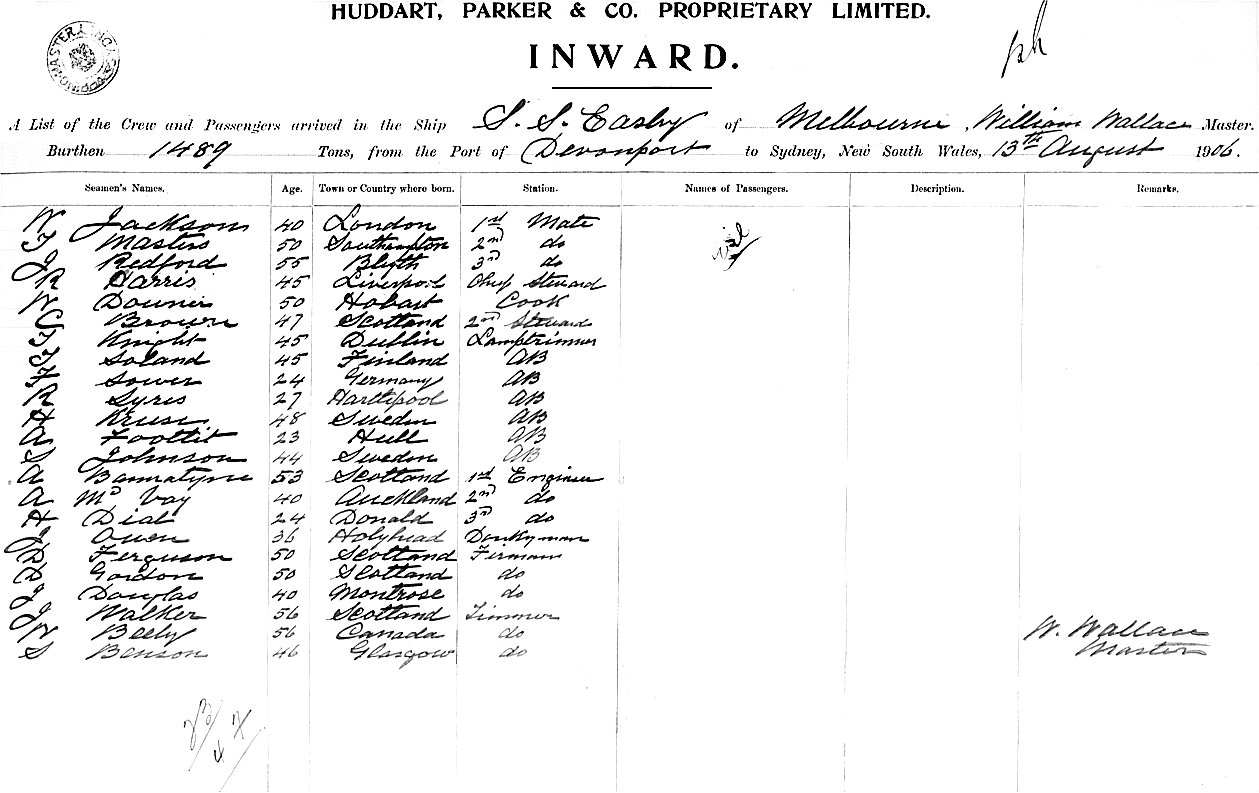 HUDDART, PARKER & CO. PROPRIETARY LIMITED.
INWARD.
A List of the Crew and Passengers arrived in the Ship S. S. Easby of Melbourne, William Wallace Master.
Burthen 1489 Tons, from the Port of Devonport to Sydney, New South Wales, 13th August 1906.
Seamen's Names. Age. Town or Country where born. Station. Names of Passengers. Description. Remarks.
W Jackson 40 London 1st Mate
Masters 50 Southampton 2nd do
Redford 55 Blyth 3rd do
R Harris 45 Liverpool Chief Steward
W Downie 50 Hobart Cook
Brown 47 Scotland 2nd Steward
Knight 45 Dublin Lamptrimmer
Soland 45 Finland AB
Sower 24 Germany AB
Syres 27 Hartlepool AB
Kruse 48 Sweden AB
A Foottit 23 Hull AB
Johnson 44 Sweden AB
A Bannatyne 53 Scotland 1st Engineer
A McVay 40 Auckland 2nd do
Dial 24 Donald 3rd do
Owen 36 Holyhead Donkyman
D Ferguson 50 Scotland Firemans
D Gordon 50 Scotland do
Douglas 40 Montrose do
Walker 56 Scotland Timmer
W Beely 56 Canada do
S Benson 46 Glasgow do
nil
W. Wallace
Master
23/